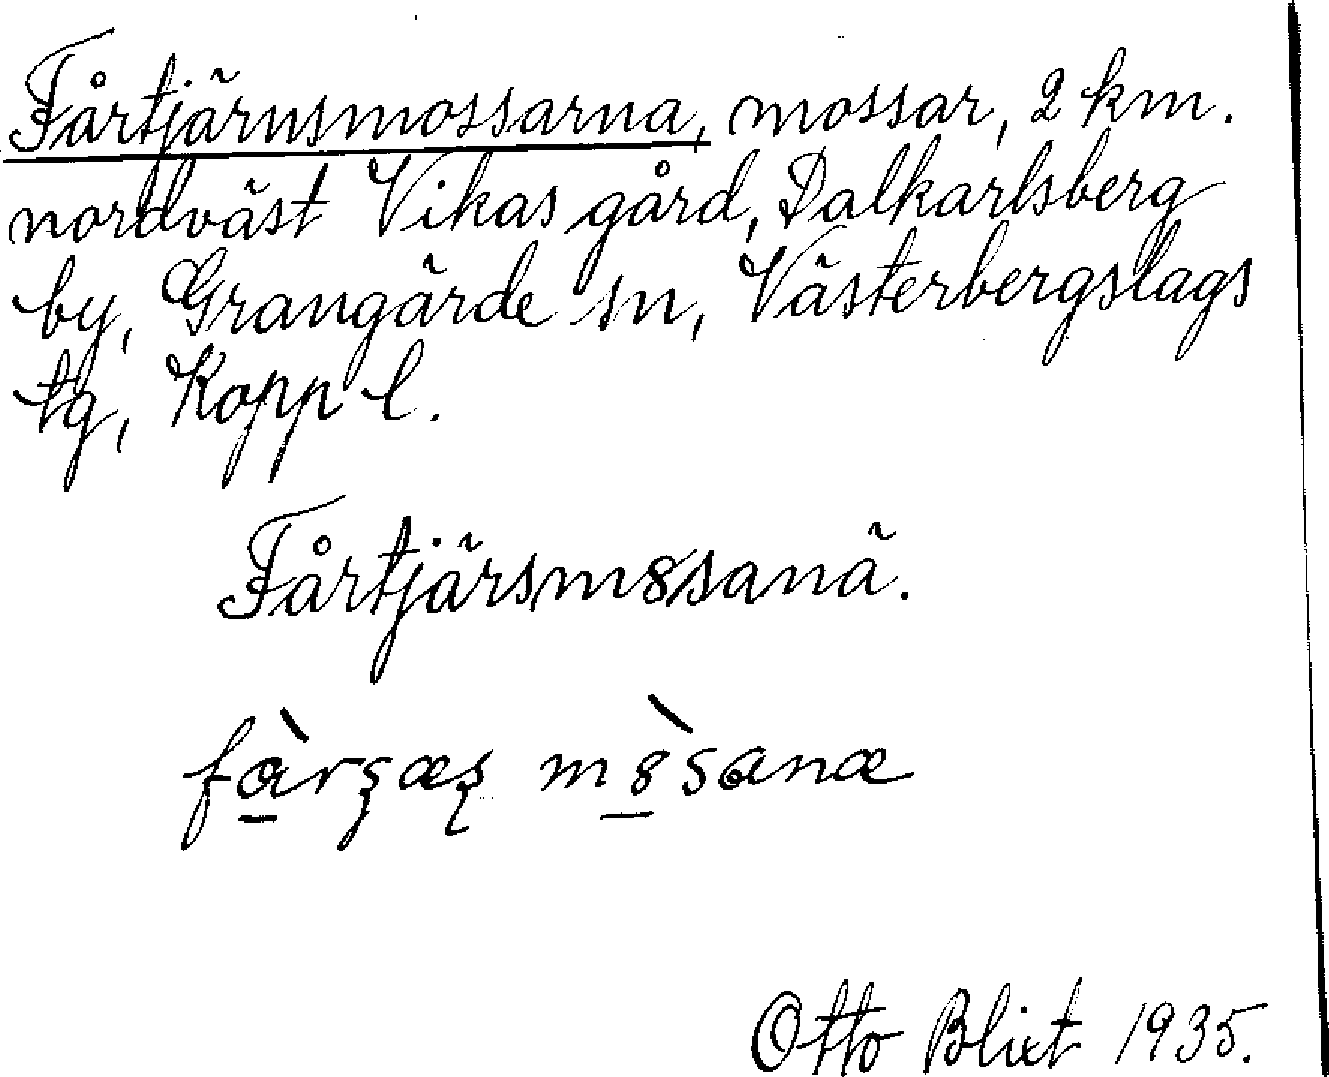 Fårtjärnsmossarna, mossar, 2 km.
nordväst Vikas gård, Dalkarlsberg
by, Grangärde sn, Västerbergslags
tg, Kopp l.
Fårtjärsm8sanä.
fὰ̠rʂæʂ m8̠̀sαnæ
Otto Blixt 1935.